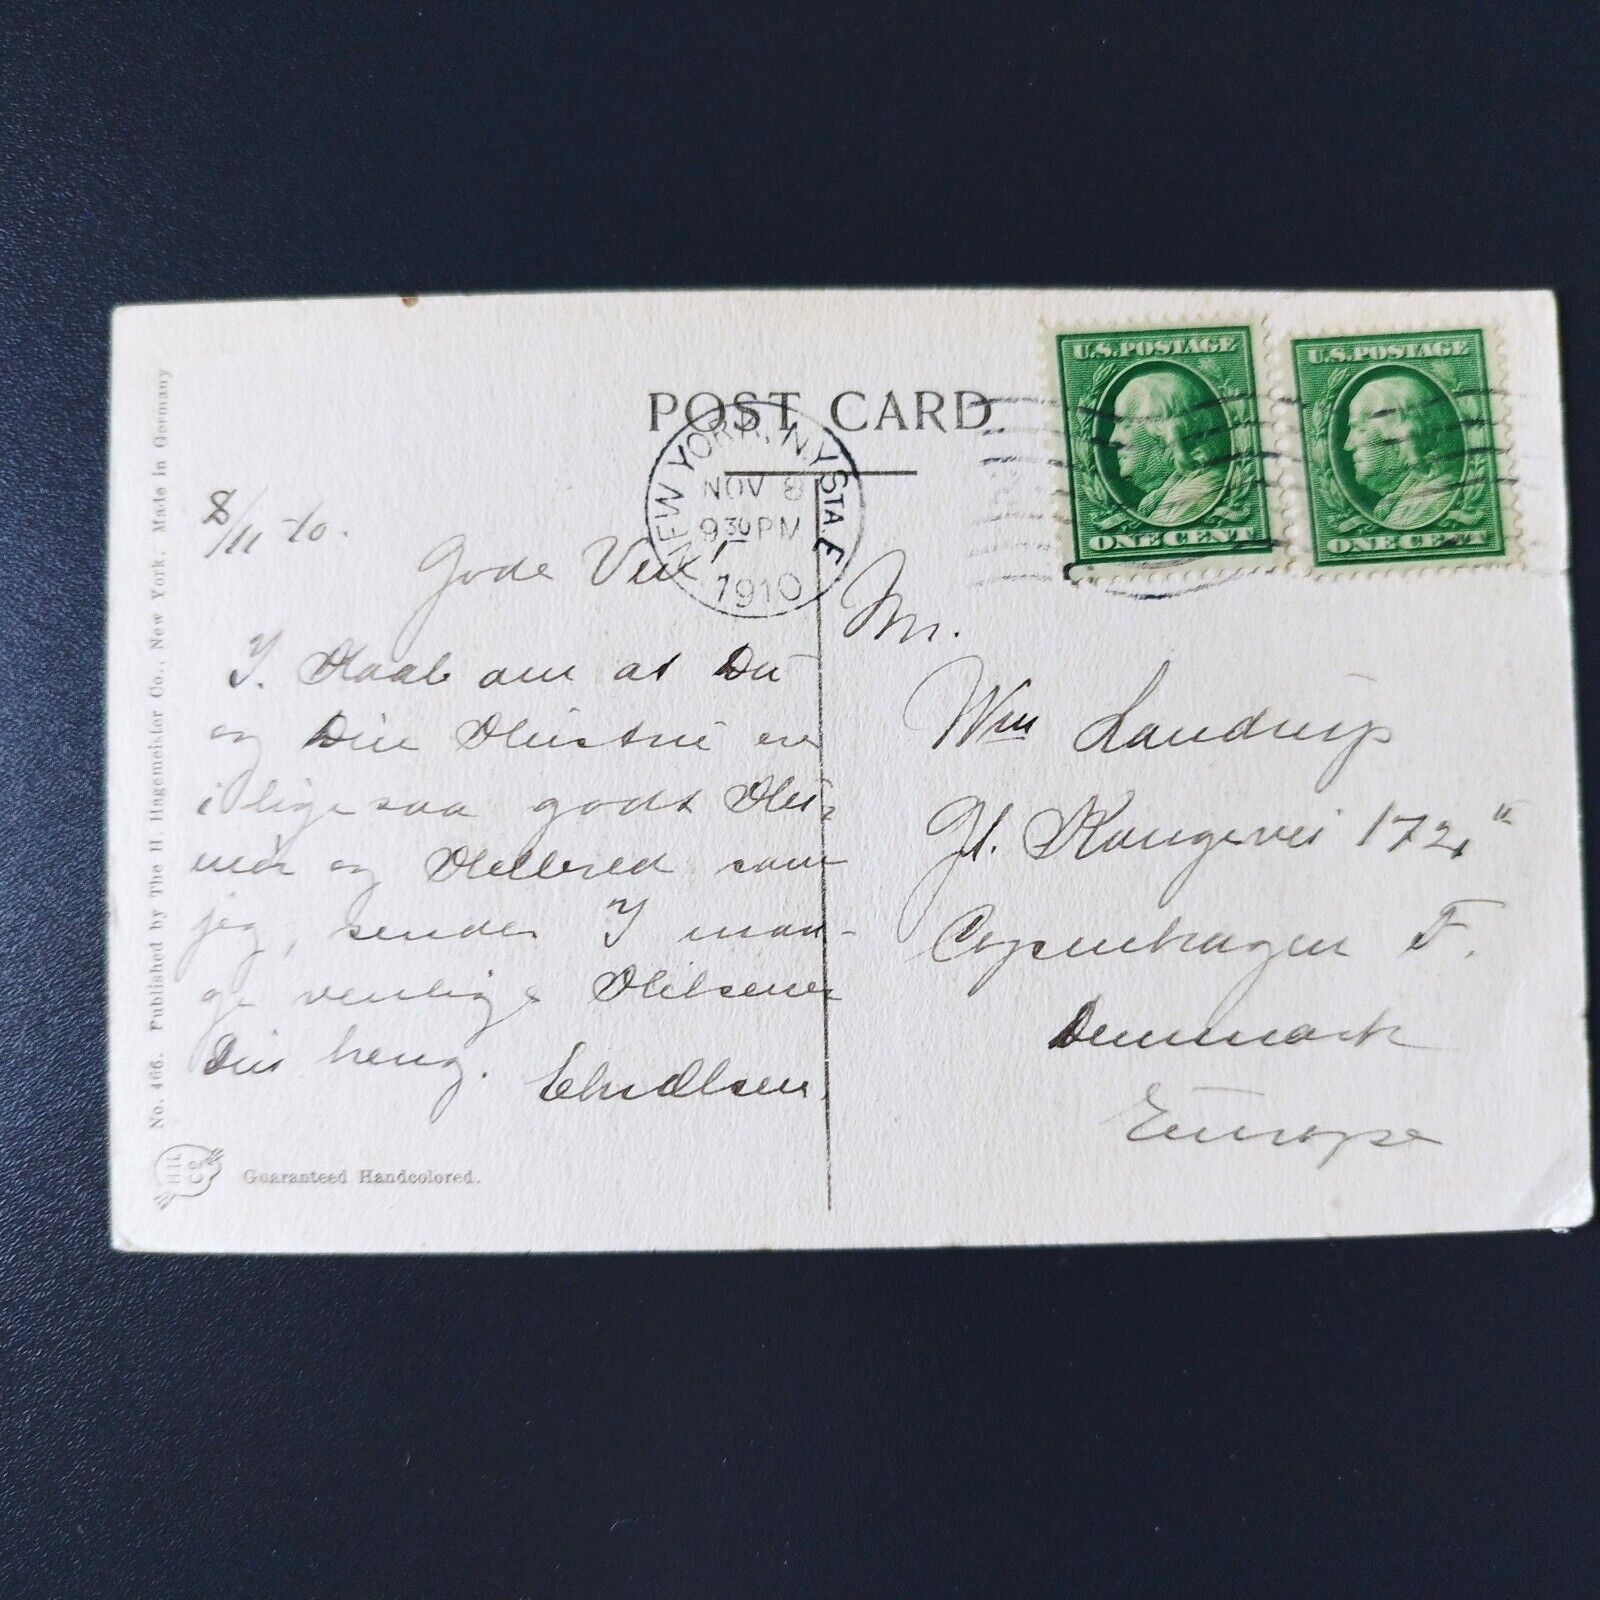 POST CARD
U.S. POSTAGE
ONE CENT
U.S. POSTAGE
ONE CENT
NEW YORK, N.Y. STA. E
NOV 8
9 30 PM
1910
8/11 - 10.
Gode Ven!
I Haab om at Du
og Din Hustru er
i lige saa godt Hu-
mør og Helbred som
jeg, sendes I man-
ge venlige Hilsener
Din heng.
Chr Olsen.
Mr.
Wm Landrup
Gl. Kongevei 172
Copenhagen F.
Denmark
Europe
No. 466. Published by The H. Hagemeister Co., New York. Made in Germany
H H
CO
Guaranteed Handcolored.